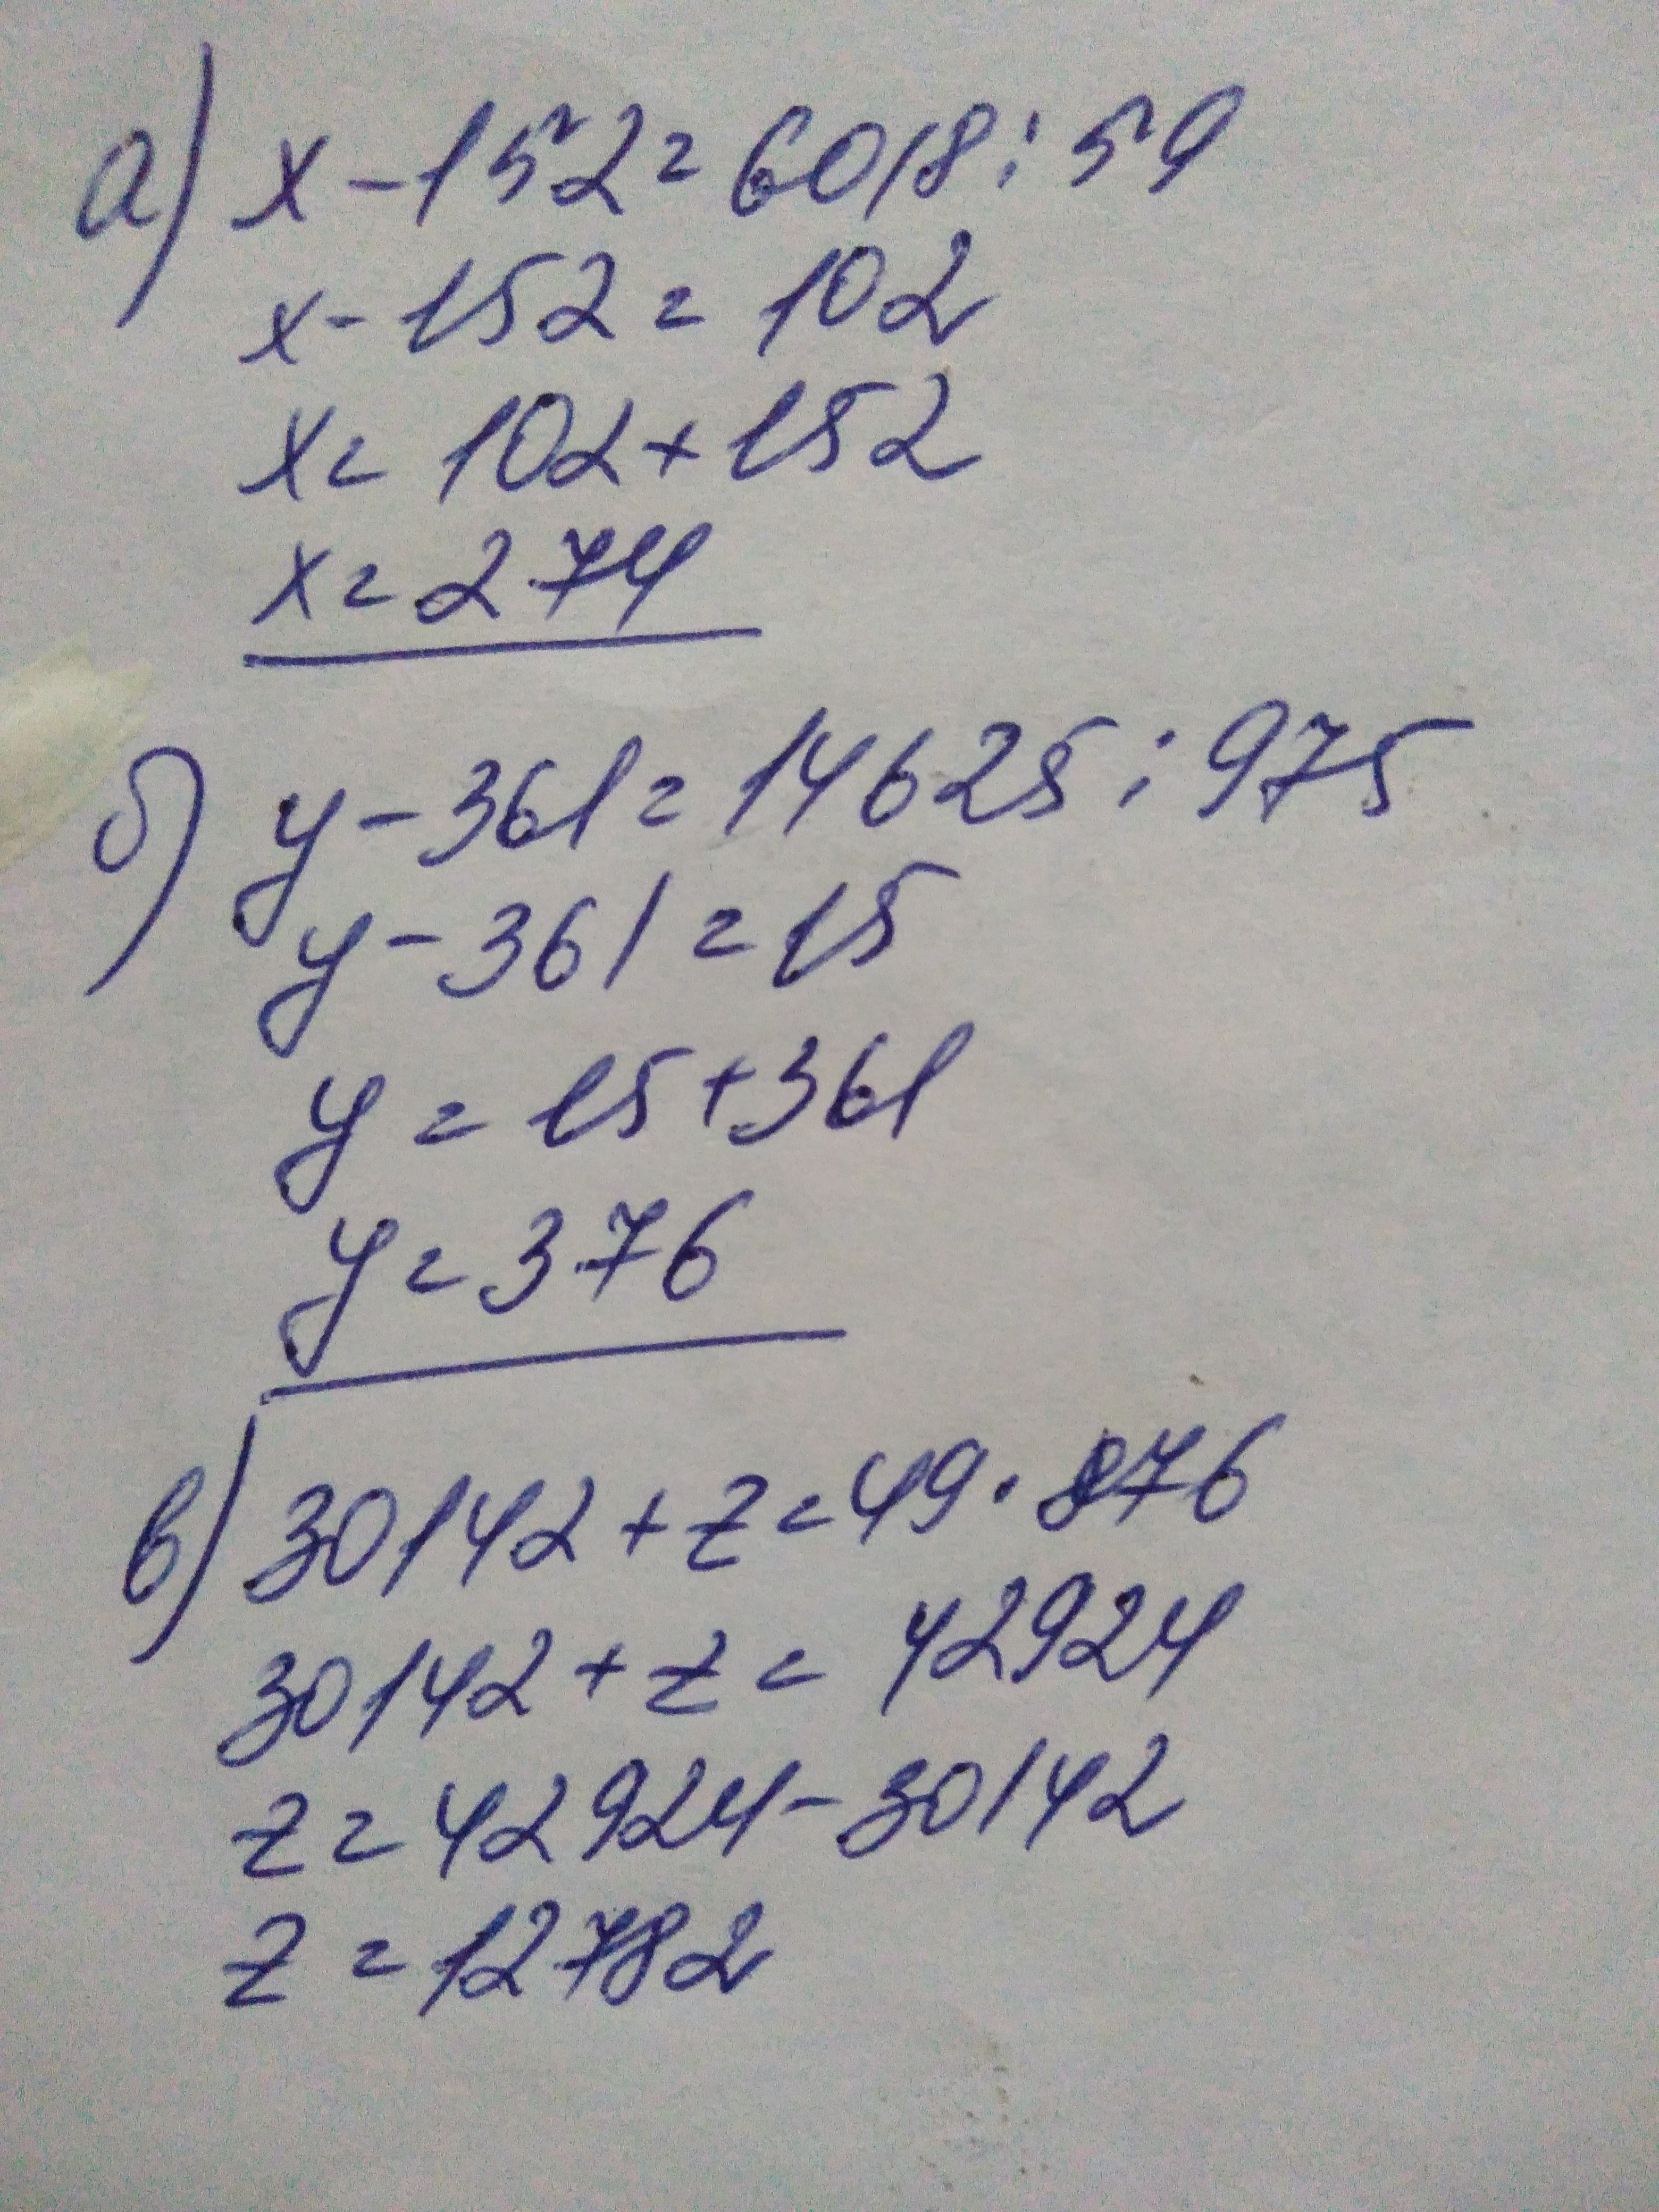 а) x - 152 = 6018 : 59
x - 152 = 102
x = 102 + 152
x = 274
б) y - 361 = 14625 : 975
y - 361 = 15
y = 15 + 361
y = 376
в) 30142 + z = 49 · 876
30142 + z = 42924
z = 42924 - 30142
z = 12782